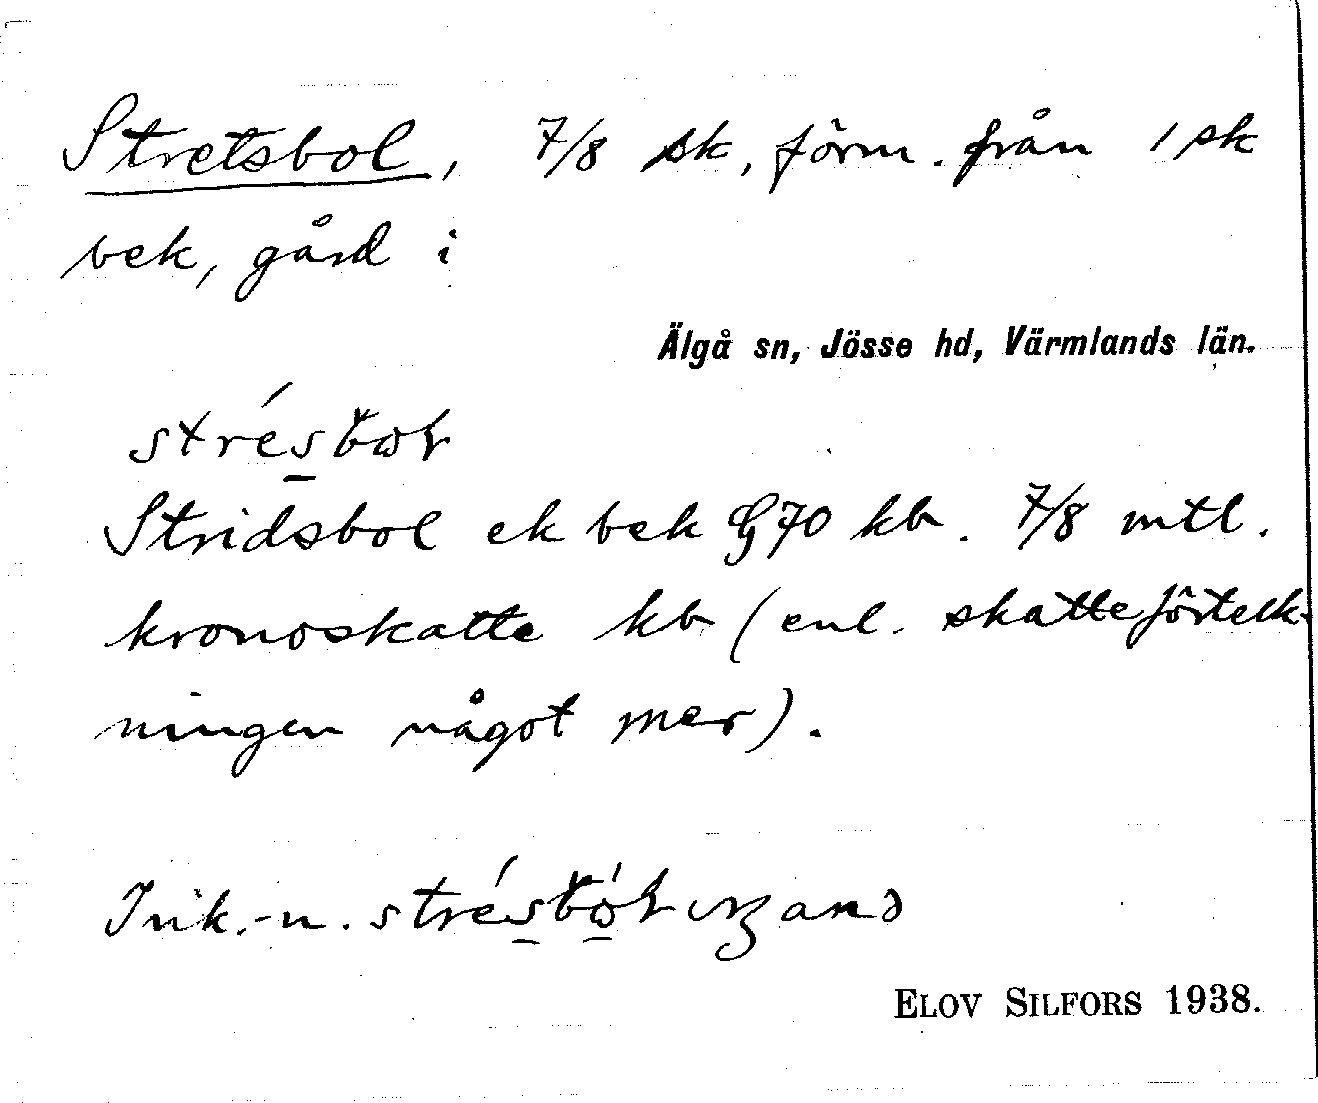 Stretsbol, 7/8 sk, förm. från 1 sk
bek, gård i
Älgå sn, Jösse hd, Värmlands län.
strésbol
Stridsbol ek bek G70 kb. 7/8 mtl.
kronoskatte kb (enl. skatteförteck-
ningen något mer).
Ink.-n.
ELOV SILFORS 1938.